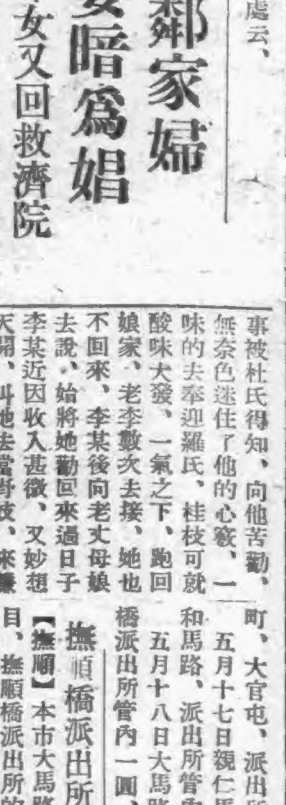 處云、
鄰家婦
暗爲娼
女又回救濟院
事被杜氏得知、向他苦勸、
無奈色迷住了他的心竅、一
味的去奉迎羅氏、桂枝可就
酸味大發、一氣之下、跑回
娘家、老李數次去接、她也
不回來、李某後向老丈母娘
去說、始將她勸回來過日子
李某近因收入甚微、又妙想
天開、叫她去當街妓、來賺
町、大官屯、派出所
五月十七日親仁馬
和馬路、派出所管
五月十八日大馬路
橋派出所管內一圓、
撫順橋派出所
【撫順】本市大馬路
目、撫順橋派出所的